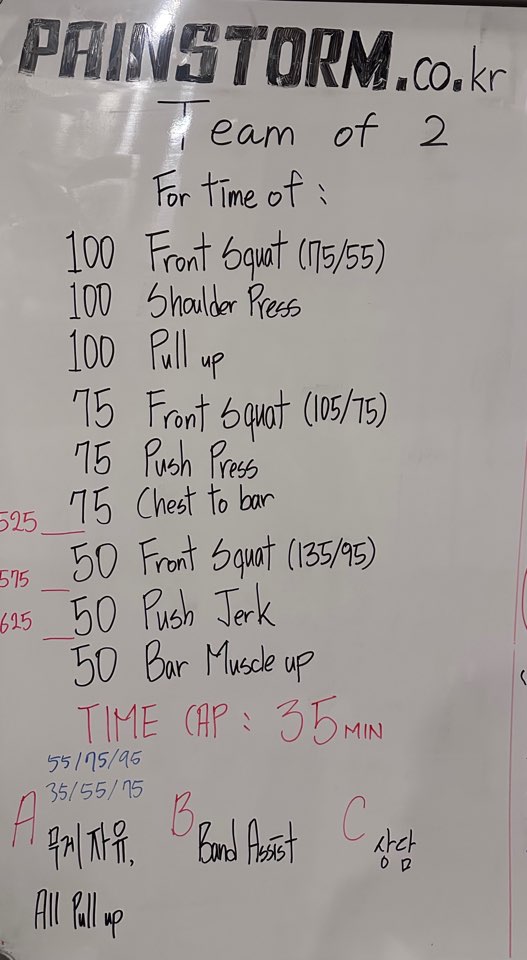 PAINSTORM.co.kr
Team of 2
For time of :
100 Front Squat (75/55)
100 Shoulder Press
100 Pull up
75 Front Squat (105/75)
75 Push Press
75 Chest to bar
525
50 Front Squat (135/95)
575
50 Push Jerk
625
50 Bar Muscle up
TIME CAP : 35 MIN
55/75/95
35/55/75
A 무게 자유, B Band Assist C 상담
All Pull up